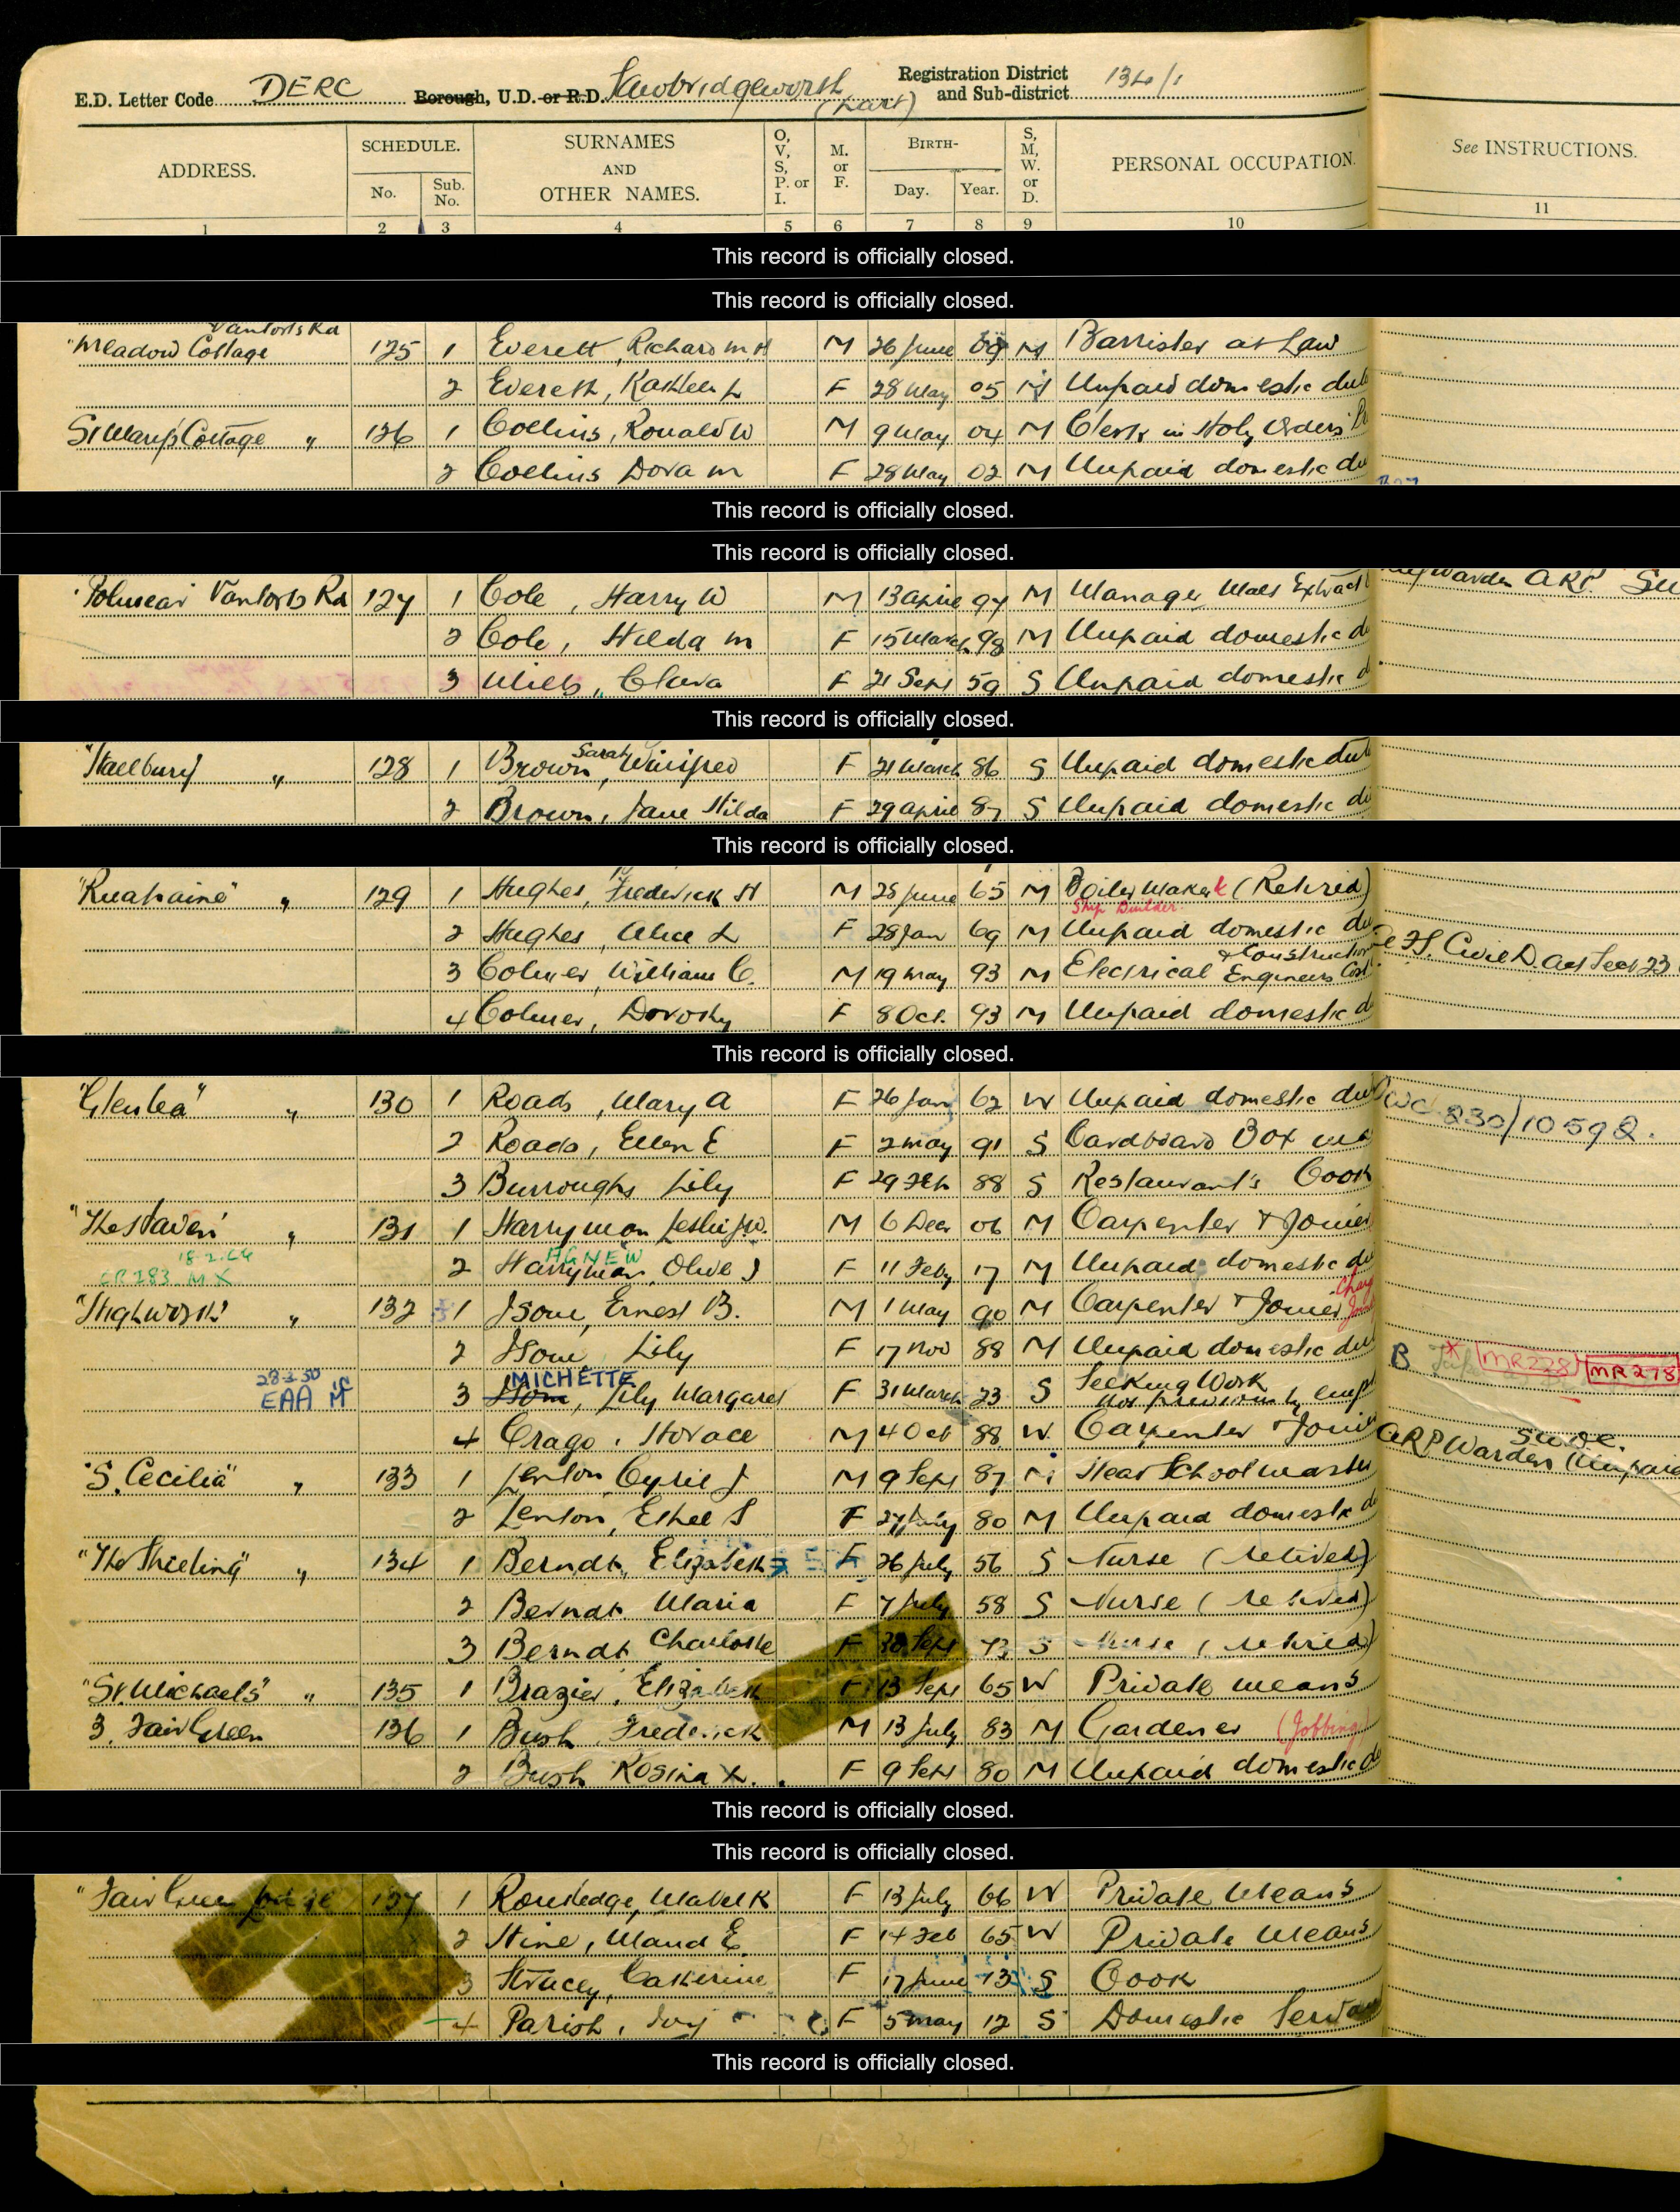 E.D. Letter Code DERC Borough, U.D. or R.D. Sawbridgeworth (part) Registration District and Sub-district 134/1
ADDRESS. SCHEDULE. No. Sub. No. SURNAMES AND OTHER NAMES. O, V, S, P. or I. M. or F. BIRTH- Day. Year. S, M, W. or D. PERSONAL OCCUPATION. See INSTRUCTIONS.
1 2 3 4 5 6 7 8 9 10 11
This record is officially closed.
This record is officially closed.
Vantorts Rd
"Meadow Cottage 125 1 Everett, Richard M H M 26 June M Barrister at Law
2 Everett, Kathleen L F 28 May 05 M Unpaid domestic
St Mary's Cottage " 126 1 Collins, Ronald W M 9 May 04 M Clerk in Holy Orders
2 Collins Dora M F 28 May 02 M Unpaid domestic
This record is officially closed.
This record is officially closed.
Vantorts Rd 127 1 Cole, Harry W M 13 April 97 M Manager Malt Extract Warden ARP
2 Cole, Hilda M F 15 March 98 M Unpaid domestic
3 Wills, Clara F 21 Sept 59 S Unpaid domestic
This record is officially closed.
" 128 1 Brown, Sarah Winifred F 21 March 86 S Unpaid domestic
2 Brown, Jane Hilda F 29 April 87 S Unpaid domestic
This record is officially closed.
"Ruahaine" " 129 1 Hughes, Frederick H M 25 June 65 M Boiler Maker (Retired)
Ship Builder
2 Hughes, Alice L F 28 Jan 69 M Unpaid domestic
3 Colmer, William C. M 19 May 93 M Electrical & Construction Engineers
4 Colmer, Dorothy F 8 Oct. 93 M Unpaid domestic
This record is officially closed.
"Glenlea" " 130 1 Roads, Mary A F 26 Jan 62 W Unpaid domestic 230/10592.
2 Roads, Ellen E F 2 May 91 S Cardboard Box
3 Burroughs Lily F 29 Feb 88 S Restaurant's Cook
"The Haven" " 131 1 Harryman Leslie J.W. M 6 Dec 06 M Carpenter & Joiner
AGNEW
CR283 MX 2 Harryman, Olive J F 11 Feby 17 M Unpaid domestic
"Highworth" " 132 1 Isom, Ernest B. M 1 May 90 M Carpenter & Joiner
2 Isom, Lily F 17 Nov 88 M Unpaid domestic B MR228 MR278
28.3.50 MICHETTE Seeking Work
EAA 3 Isom, Lily Margaret F 31 March 23 S Not previously
4 Crago, Horace M 4 Oct 88 W. Carpenter & Joiner
"S. Cecilia" " 133 1 Lenton Cyril J M 9 Sept 87 M Head School Master ARP Warden
2 Lenton, Ethel S F 27 July 80 M Unpaid domestic
"The Shieling" " 134 1 Berndt, Elizabeth F 26 July 56 S Nurse (retired)
2 Berndt Maria F 7 July 58 S Nurse (retired)
3 Berndt Charlotte F 30 Sept 73 S Nurse (retired)
"St. Michael's" " 135 1 Brazier, Elizabeth F 13 Sept 65 W Private means
3. Fair Green 136 1 Bush Frederick M 13 July 83 M Gardener (Jobbing)
2 Bush Rosina L. F 9 Sept 80 M Unpaid domestic
This record is officially closed.
This record is officially closed.
"Fair Green 137 1 Routledge, Mabel K F 13 July 66 W Private Means
2 Hine, Maud E. F 14 Feb 65 W Private Means
3 Stacey, Catherine F 17 June 13 S Cook
4 Parish, Ivy F 5 May 12 S Domestic Servant
This record is officially closed.